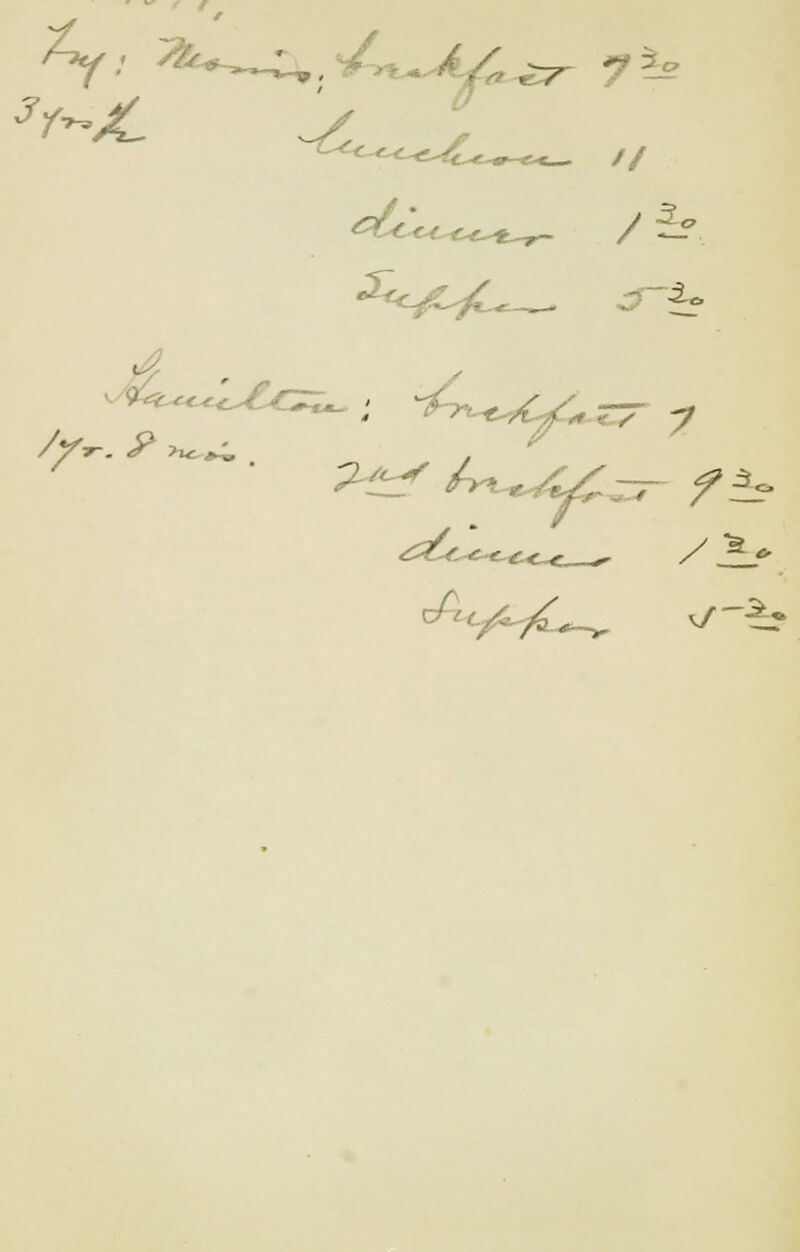 breakfast 7 30
3 yr
Luncheon 11
dinner 1 30
Supper 5-30
Hamilton; breakfast 7
1 yr. 8 mos.
2nd breakfast 9 30
dinner 1 30
Supper 5-30